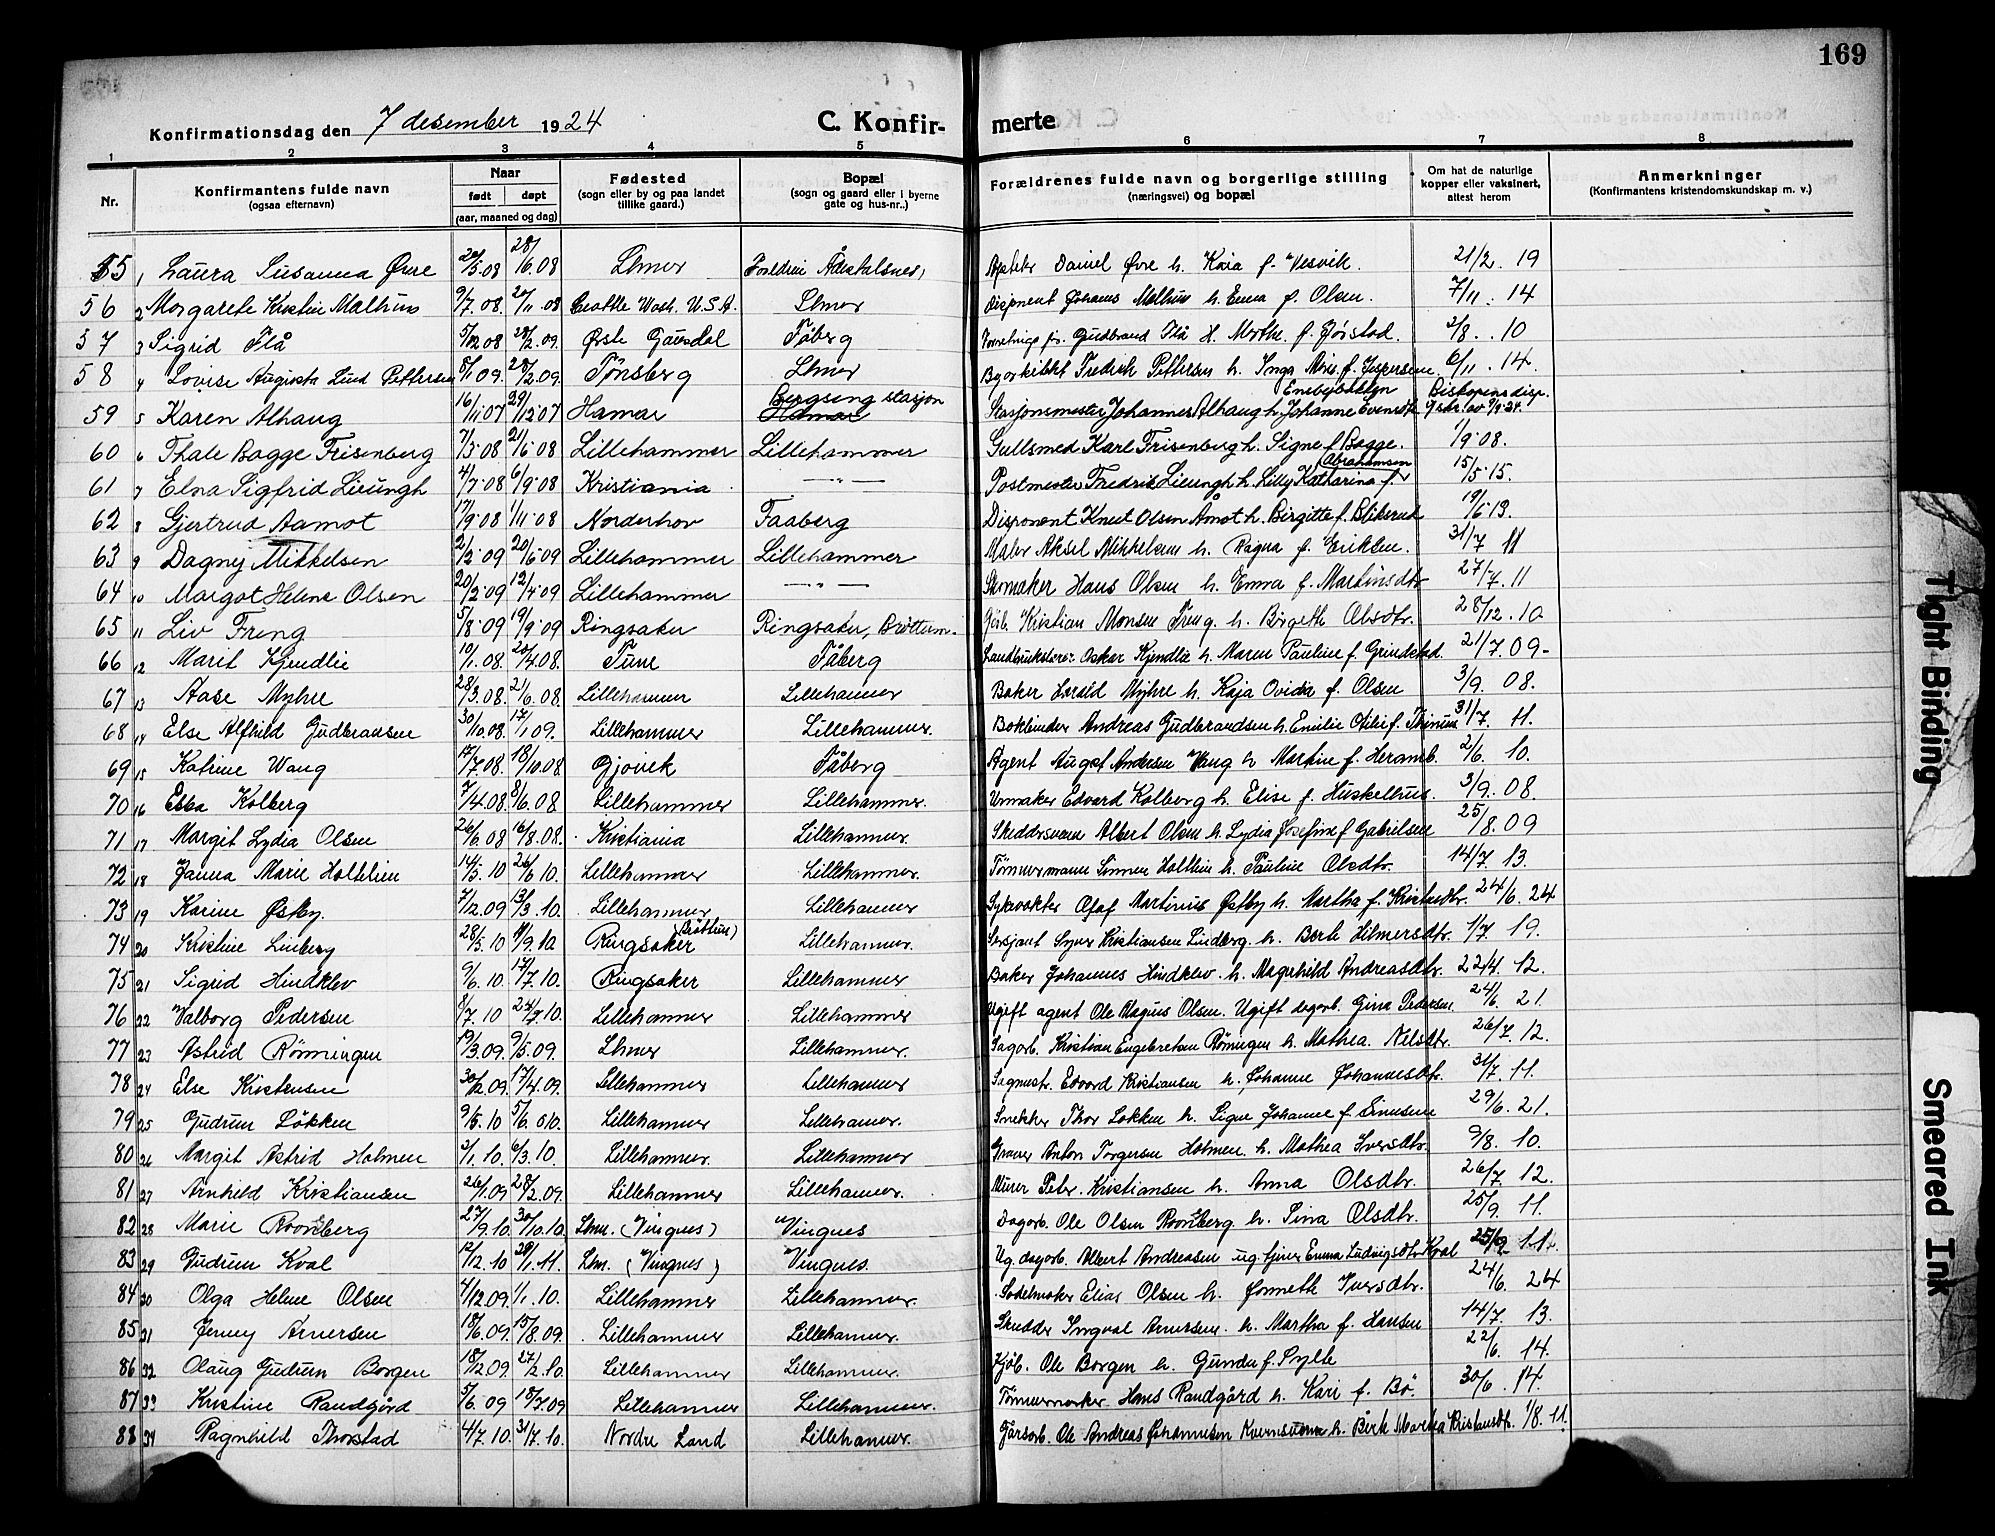 169
Konfirmationsdag den 7 desember 1924 C. Konfir- merte
1 2 3 4 5 6 7 8
Nr. Konfirmantens fulde navn (ogsaa efternavn) Naar født døpt (aar, maaned og dag) Fødested (sogn eller by og paa landet tillike gaard.) Bopæl (sogn og gaard eller i byerne gate og hus-nr..) Forældrenes fulde navn og borgerlige stilling (næringsvei) og bopæl Om hat de naturlige kopper eller vaksinert, attest herom Anmerkninger (Konfirmantens kristendomskundskap m. v.)
55 1 Laura Susanna Øvre 28/6.08 Lhmer Daniel Øvre h. Kaia f. Vesvik. 21/2. 19
56 2 Margarete Kristine Malhus 9/7.08 Seattle Wash. U.S.A. Lhmer Disponent Johans Malhus h. Emma f. Olsen. 7/11. 14
57 3 Sigrid Flå 5/12 08 28/2.09. Østre Gausdal Fåberg Gudbrand Flå h. Marthe f. Jørstad. 2/8. 10
58 4 Lovise Augusta Lund Pettersen 8/1 09. 28/2.09. Tønsberg Lhmer Byarkitekt Fredrik Pettersen h. Inga Marie f. Jespersen 6/11. 14.
59 5 Karen Alhaug 16/11 07 29/12 07 Hamar Bergseng stasjon Hamar Stasjonsmester Johannes Alhaug h. Johanne Evensdtr. Enebystuen Biskopens disp.
60 6 Thale Bagge Frisenberg 7/3 08 21/6 08 Lillehammer Lillehammer Gullsmed Karl Frisenberg h. Signe f. Bagge. 1/9 08.
61 7 Elna Sigfrid Lieungh 4/7 08 6/9 08 Kristiania - " - Postmester Fredrik Lieungh h. Lilly Katharina f. Abrahamsen 15/5 15.
62 8 Gjertrud Aamot 17/9 08 1/11 08 Norderhov Faaberg Disponent Knut Olsen Åmot h. Birgitte f. Bliksrud
63 9 Dagny Mikkelsen 2/2 09 20/6 09 Lillehammer Lillehammer Maler Aksel Mikkelsen h. Ragna f. Eriksen. 31/7 11
64 10 Margot Helene Olsen 20/2 09 12/4 09 Lillehammer - " - Skomaker Hans Olsen h. Emma f. Martinsdtr 27/7. 11
65 11 Liv Freng 5/8 09 19/9 09 Ringsaker Ringsaker, Brøttum. Gårb. Kristian Monsen Freng h. Borgethe Olsdtr. 28/12. 10
66 12 Marit Kjendlie 10/1.08. 20/4.08. Tune Fåberg Landbrukslærer Oskar Kjendlie h. Maren Pauline f. Grindstad. 21/7. 09-
67 13 Aase Myhre 28/3.08. 21/6.08. Lillehammer Lillehammer Baker Harald Myhre h. Kaja Ovidia f. Olsen 3/9. 08.
68 14 Else Alfhild Gudbrandsen 30/10.08. 17/1.09. Lillehammer Lillehammer. Bokbinder Andreas Gudbrandsen h. Emilie Otilie f. Thinius 31/7. 11.
69 15 Katrine Wang 17/7.08. 18/10.08. Gjøvik Fåberg Agent August Andersen Wang h Martine f. Heramb. 2/6. 10.
70 16 Ebba Kolberg 7/4.08. 8/6.08 Lillehammer Lillehammer. Urmaker Edvard Kolberg h. Elise f. Huskelhus. 3/9. 08.
71 17 Margit Lydia Olsen 26/6.08 16/8.08. Kristiania Lillehammer. Skreddersvenn Albert Olsen h. Lydia Josefine f Gabrielsen 25/8. 09
72 18 Janna Marie Holtelien 14/5. 10 26/6 10. Lillehammer Lillehammer. Tømmermann Simen Holtlien h. Pauline Olsdtr. 14/7. 13.
73 19 Karine Østby. 7/12.09 13/3.10. Lillehammer Lillehammer Sykevokter Olaf Martinius Østby h. Martha f. Kristiansdtr. 24/6. 24
74 20 Kristine Linberg 28/5.10 11/9.10 Ringsaker (Brøttum) Lillehammer. Sersjant Syver Kristiansen Lindberg. h. Berte Hilmersdtr. 1/7. 19.
75 21 Sigrid Hindklev 9/6.10. 17/7.10. Ringsaker Lillehammer Baker Johannes Hindklev. h. Magnhild Andreasdtr. 22/4. 12.
76 22 Valborg Pedersen 8/7.10 24/7.10. Lillehammer Lillehammer Ugift agent Ole Magnus Olsen. Ugift dagarb. Gina Pedersen. 24/6. 21.
77 23 Astrid Rønningen 19/3.09. 9/5.09. Lhmer Lillehammer. Sagarb. Kristian Engebretsen Rønningen h. Mathea. Nelsdtr. 26/7. 12.
78 24 Else Kristensen 30/2.09. 17/4.09. Lillehammer Lillehammer Sagmestr. Edvard Kristiansen h. Johanne Johannesdtr. 31/7. 11.
79 25 Gudrun Løkken 9/5.10 5/6.10. Lillehammer Lillehammer. Snekker Thor Løkken h. Signe Johanne f. Simensen 29/6. 21.
80 26 Margit Astrid Holmen 2/1.10. 6/3.10. Lillehammer. Lillehammer Graver Anton Torgersen Holmen h. Mathea Iversdtr. 9/8. 10.
81 27 Arnhild Kristiansen 26/1.09 28/2.09. Lillehammer Lillehammer. Murer Peter Kristiansen h. Anna Olsdtr. 26/7. 12.
82 28 Marie Roensberg 27/9.10. 30/10.10. Lhm. (Vingnes) Vingnes Dagarb. Ole Olsen Roensberg h. Sina Olsdtr. 25/9. 11.
83 29 Gudrun Kval 12/12.10 29/1.11. Lhm. (Vingnes) Vingnes. Ug. dagarb. Albert Andreasen ug. tjener Emma Ludvigsdtr Kval 25/9 11.
84 30 Olga Helene Olsen 4/12.09. 1/1.10. Lillehammer Lillehammer. Sadelmaker Elias Olsen h. Jonnette Iversdtr. 24/6. 24
85 31 Jenny Arnesen 18/6.09. 15/8.09. Lillehammer Lillehammer. Skredder Ingval Arnesen. h. Martha f. Hansen 14/7. 13.
86 32 Olaug Gudrun Borgen 18/12.09. 27/2.10. Lillehammer Lillehammer. Kjøb. Ole Borgen h. Gunda f. Sylte 22/6. 14.
87 33 Kristine Randgård 5/6.09 18/7.09 Lillehammer Lillehammer. Tømmermerker Hans Randgård h. Kari f. Bø. 30/6. 14.
88 34 Ragnhild Thorstad 4/7.10. 31/7.10. Nordre Land Lillehammer. Gårsarb. Ole Andreas Johannesen h. Berte Marthea Kristiansdtr. 1/8. 11.
Tight Binding
Smeared Ink